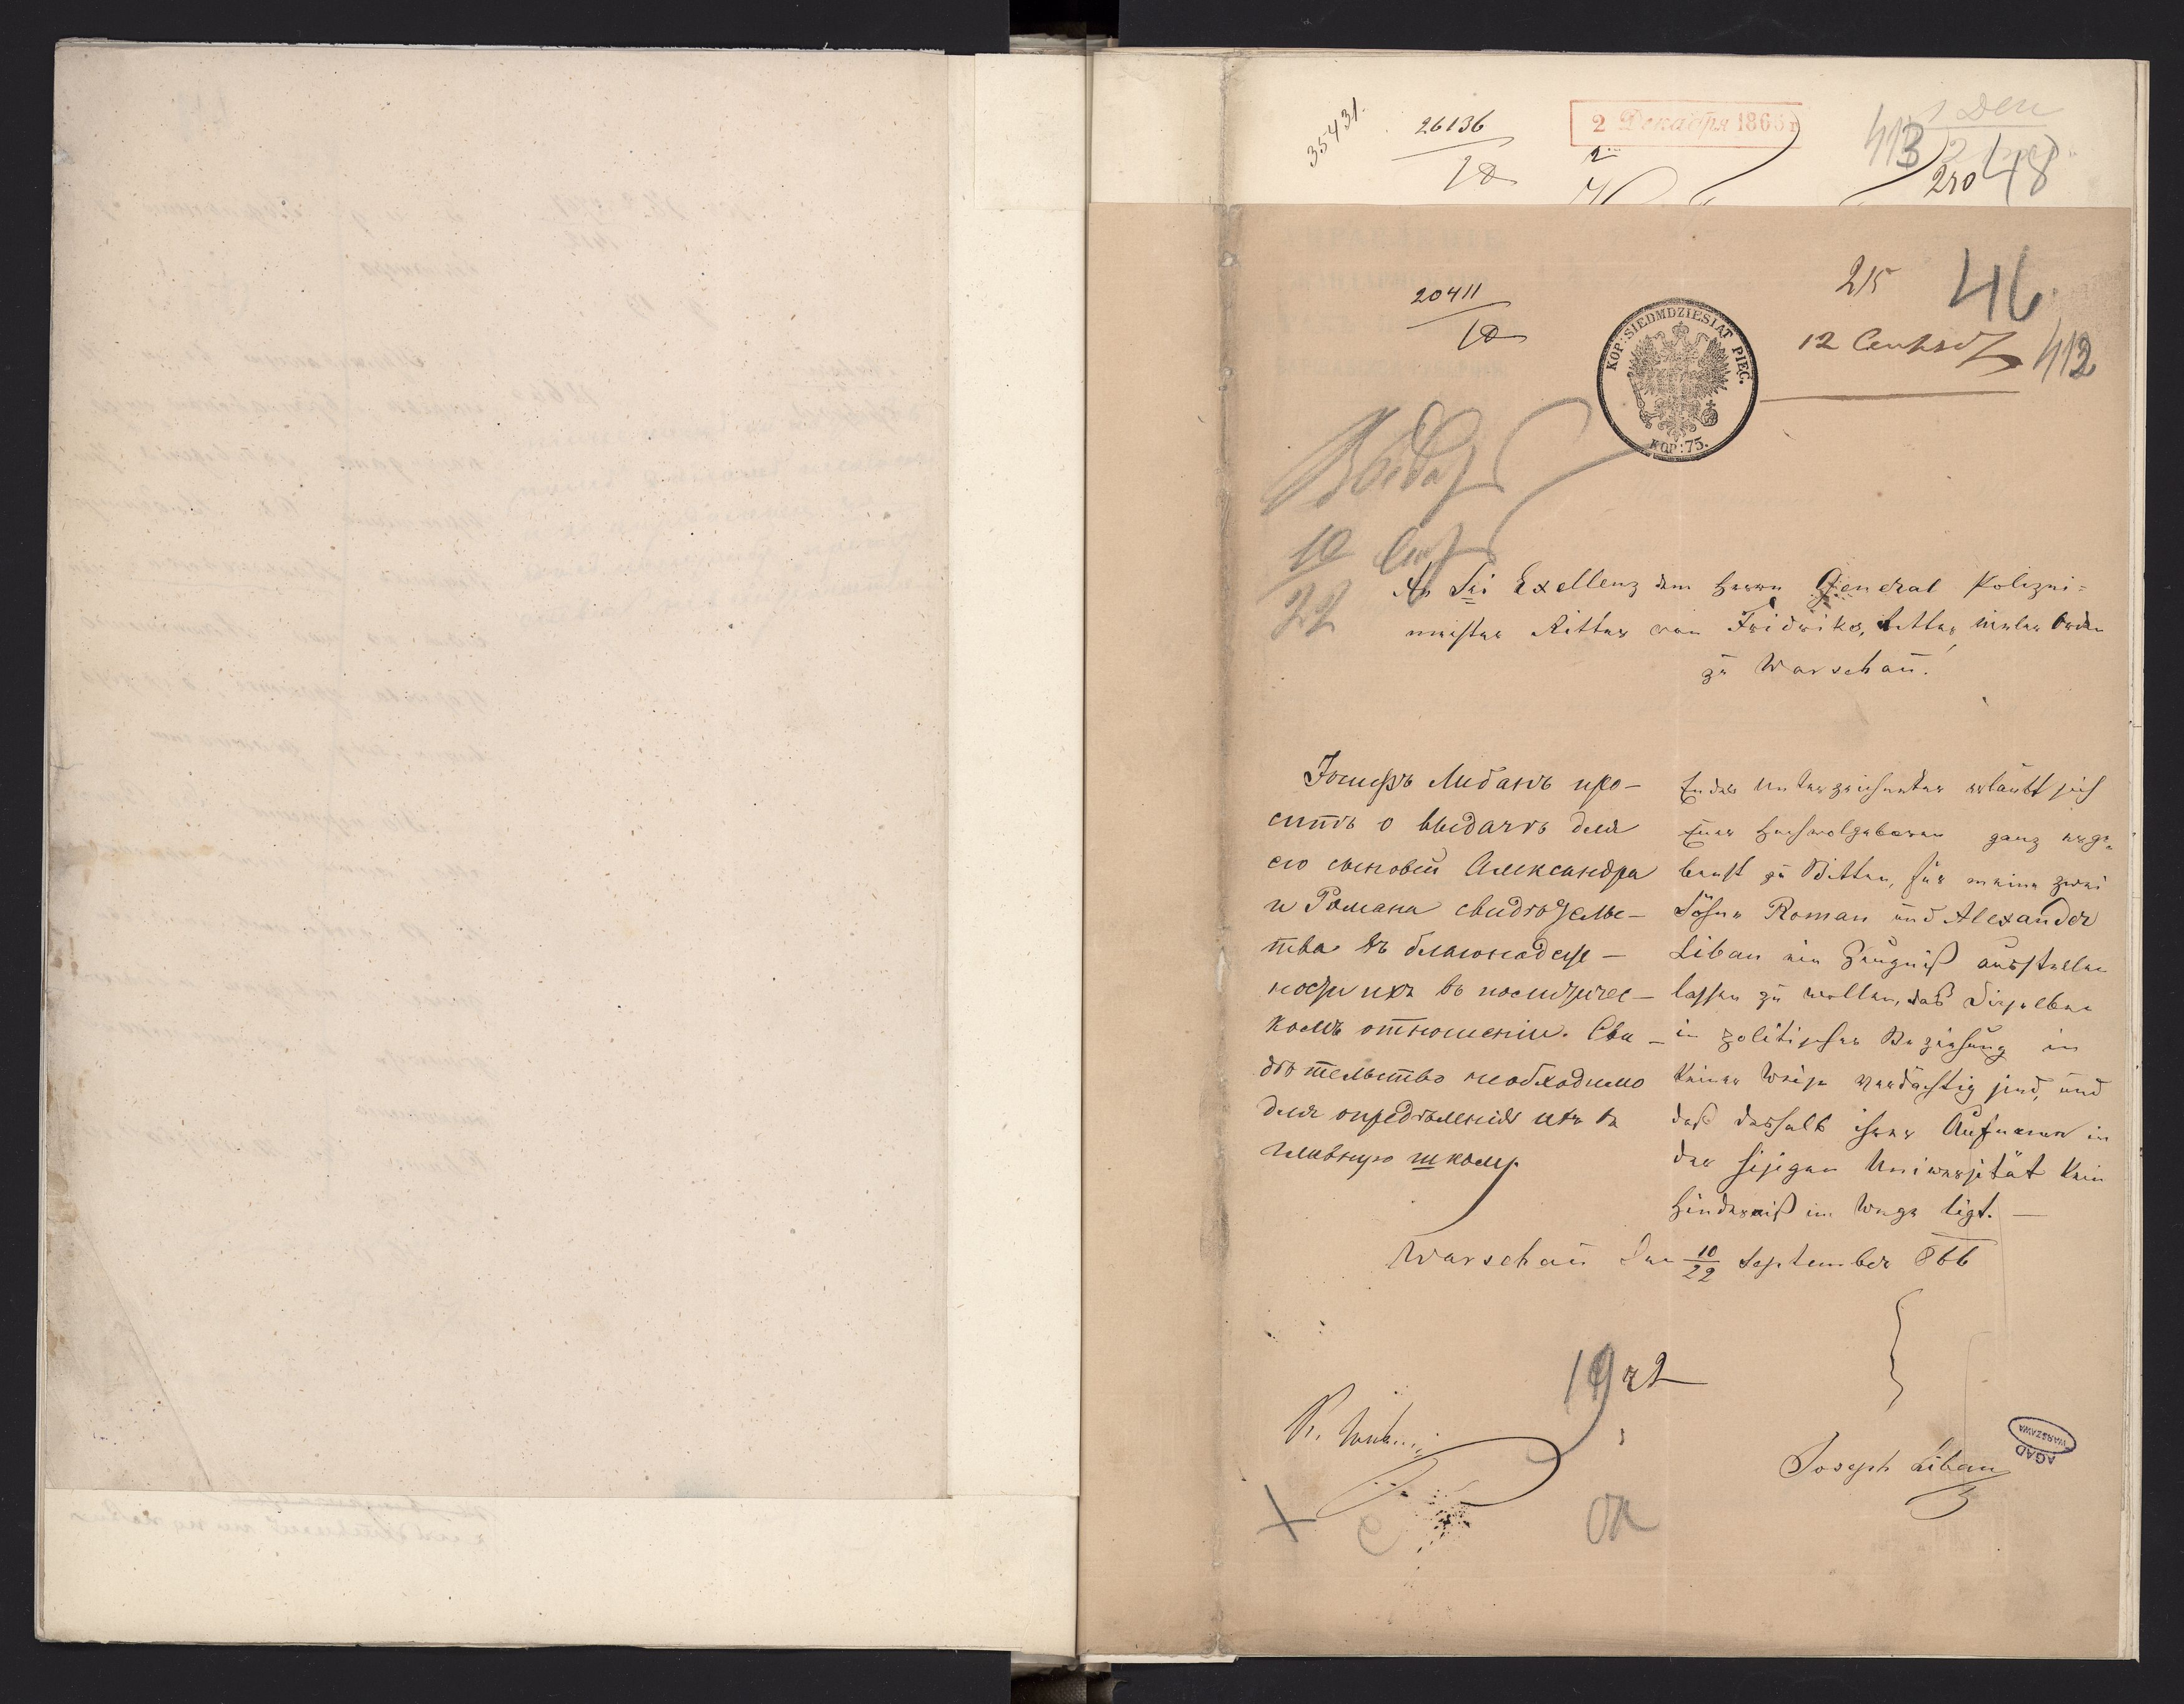 35431.
26136
18
2 Декабря 1866 г
413
48
210
215
46
20411
18
KOP: SIEDMDZIESIĄT PIĘĆ.
KOP: 75.
12 Сентяб
412
Выдать
10 Сент
22
An Sei Exellenz dem Herrn General Polizei=
meister Ritter von Fridriks, Ritter vieler Orden
zu Warschau.
Іосифъ Либанъ про-
ситъ о выдачѣ для
его сыновей Александра
и Романа свидѣтель-
тва въ благонадеж-
ности ихъ въ политичес-
комъ отношеніи. Сви-
дѣтельство необходимо
для опредѣленія ихъ въ
главную школу.
Endes Unterzeichneter erlaubt sich
Euer Hochwolgeboren ganz erge-
benst zu Bitten, für meine zwei
Söhne Roman und Alexander
Liban ein Zeugniß ausstellen
lassen zu wollen, daß Dieselben
in politischer Beziehung in
keiner Weise verdächtig sind, und
daß deshalb ihrer Aufname in
der hisigen Uniwersität kein
Hinderniß im Wege ligt. —
Warschau den 10/22 September 866
1922
Joseph Liban
AGAD
WARSZAWA